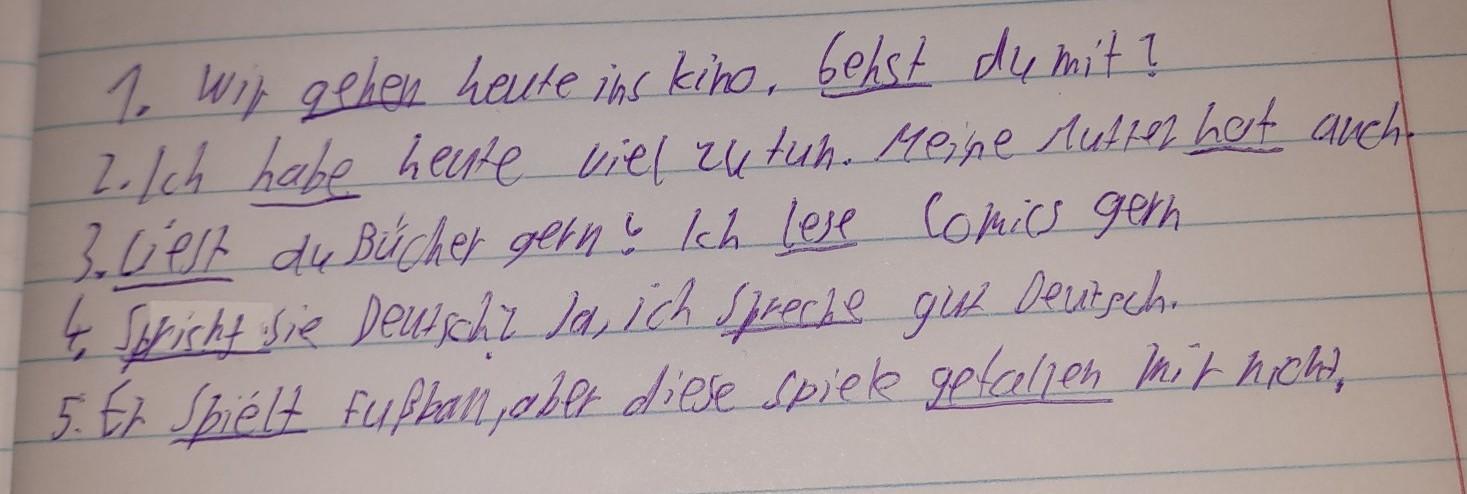 1. Wir gehen heute ins kino. Gehst du mit?
2. Ich habe heute viel zu tun. Meine Mutter hat auch.
3. Liest du Bücher gern? Ich lese Comics gern
4. Spricht sie Deutsch? Ja, ich spreche gut Deutsch.
5. Er spielt Fußball, aber diese spiele gefallen mir nicht.